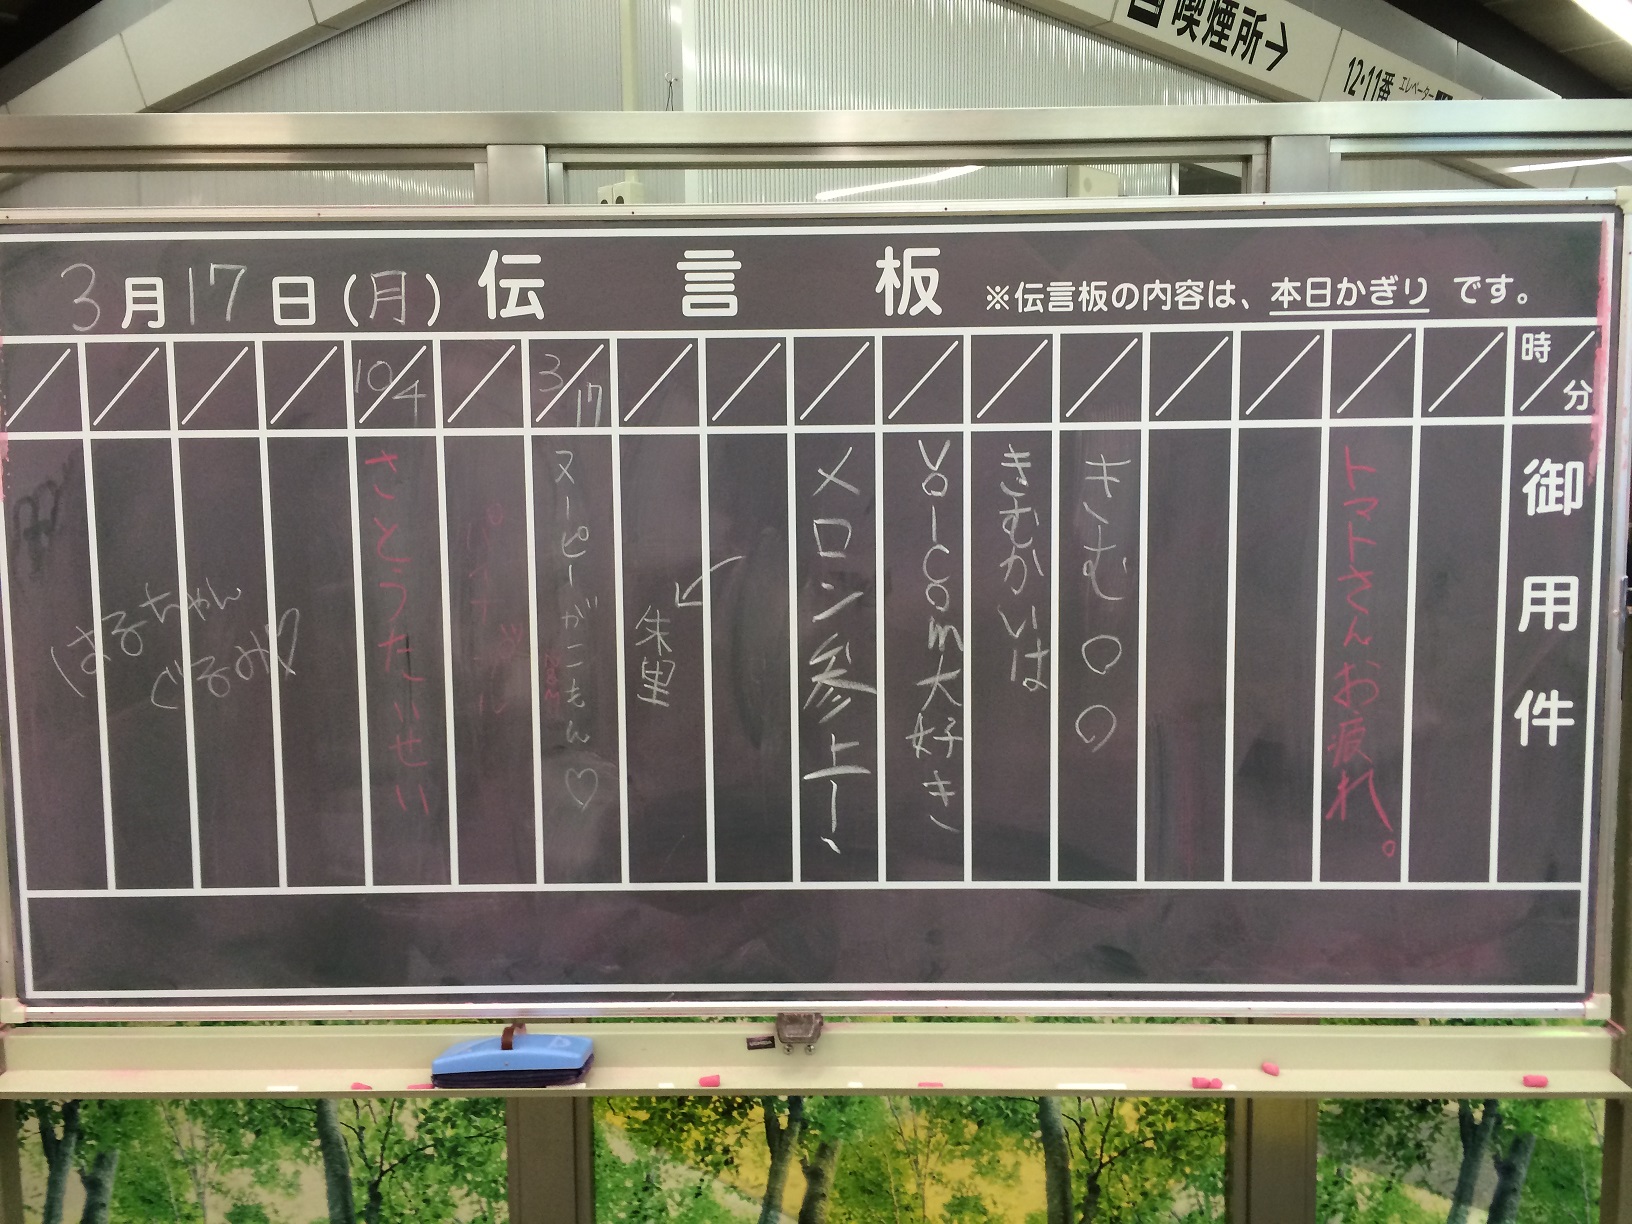 喫煙所→
12・11番 エレベーター
3月17日(月) 伝言板 ※伝言板の内容は、本日かぎり です。
時/分
御用件
トマトさんお疲れ。
きむ〇〇
きむかいは
voicom大好き
メロン参上ー、
朱里
3/17
ヌーピーがこもん♡
10/4
さとうたいせい
はるちゃん
ぐるみ♡